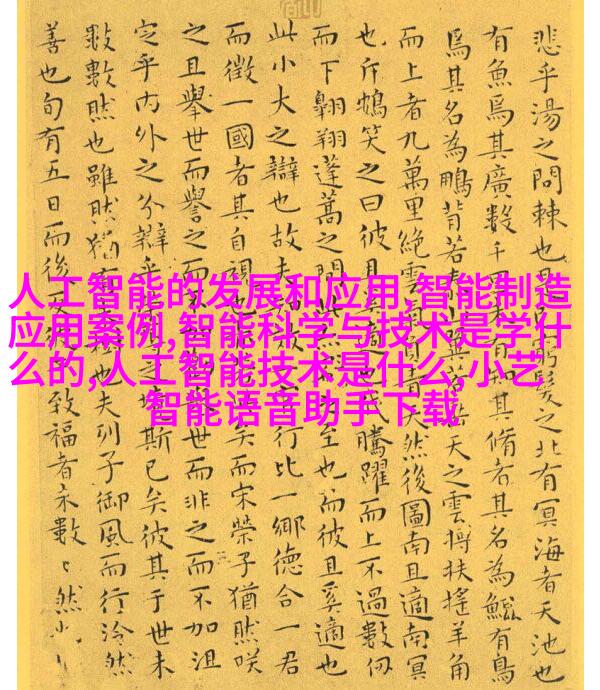 人工智能的发展和应用,智能制造
应用案例,智能科学与技术是学什
么的,人工智能技术是什么,小艺
智能语音助手下载
悲乎湯之問棘也是窮髮之北有冥海者天池也
有魚焉其廣數千里未有知其脩者其名為鯤有鳥
焉其名為鵬背若泰山翼若垂天之雲摶扶搖羊角
而上者九萬里絕雲氣負青天然後圖南且適南冥
也斥鴳笑之曰彼且奚適也我騰躍而上不過數仞
而下翱翔蓬蒿之間此之至也而彼且奚適也
此小大之辯也故夫行比一鄉德合一君
而徵一國者其自視也矣而宋榮子猶然咲
之且舉世而譽之世而非之而不加沮
定乎內外之分辯乎之境斯已矣彼其于世未
數數然也雖然猶有樹也夫列子御風而行泠然
善也旬有五日而後反致福者未數〻然此